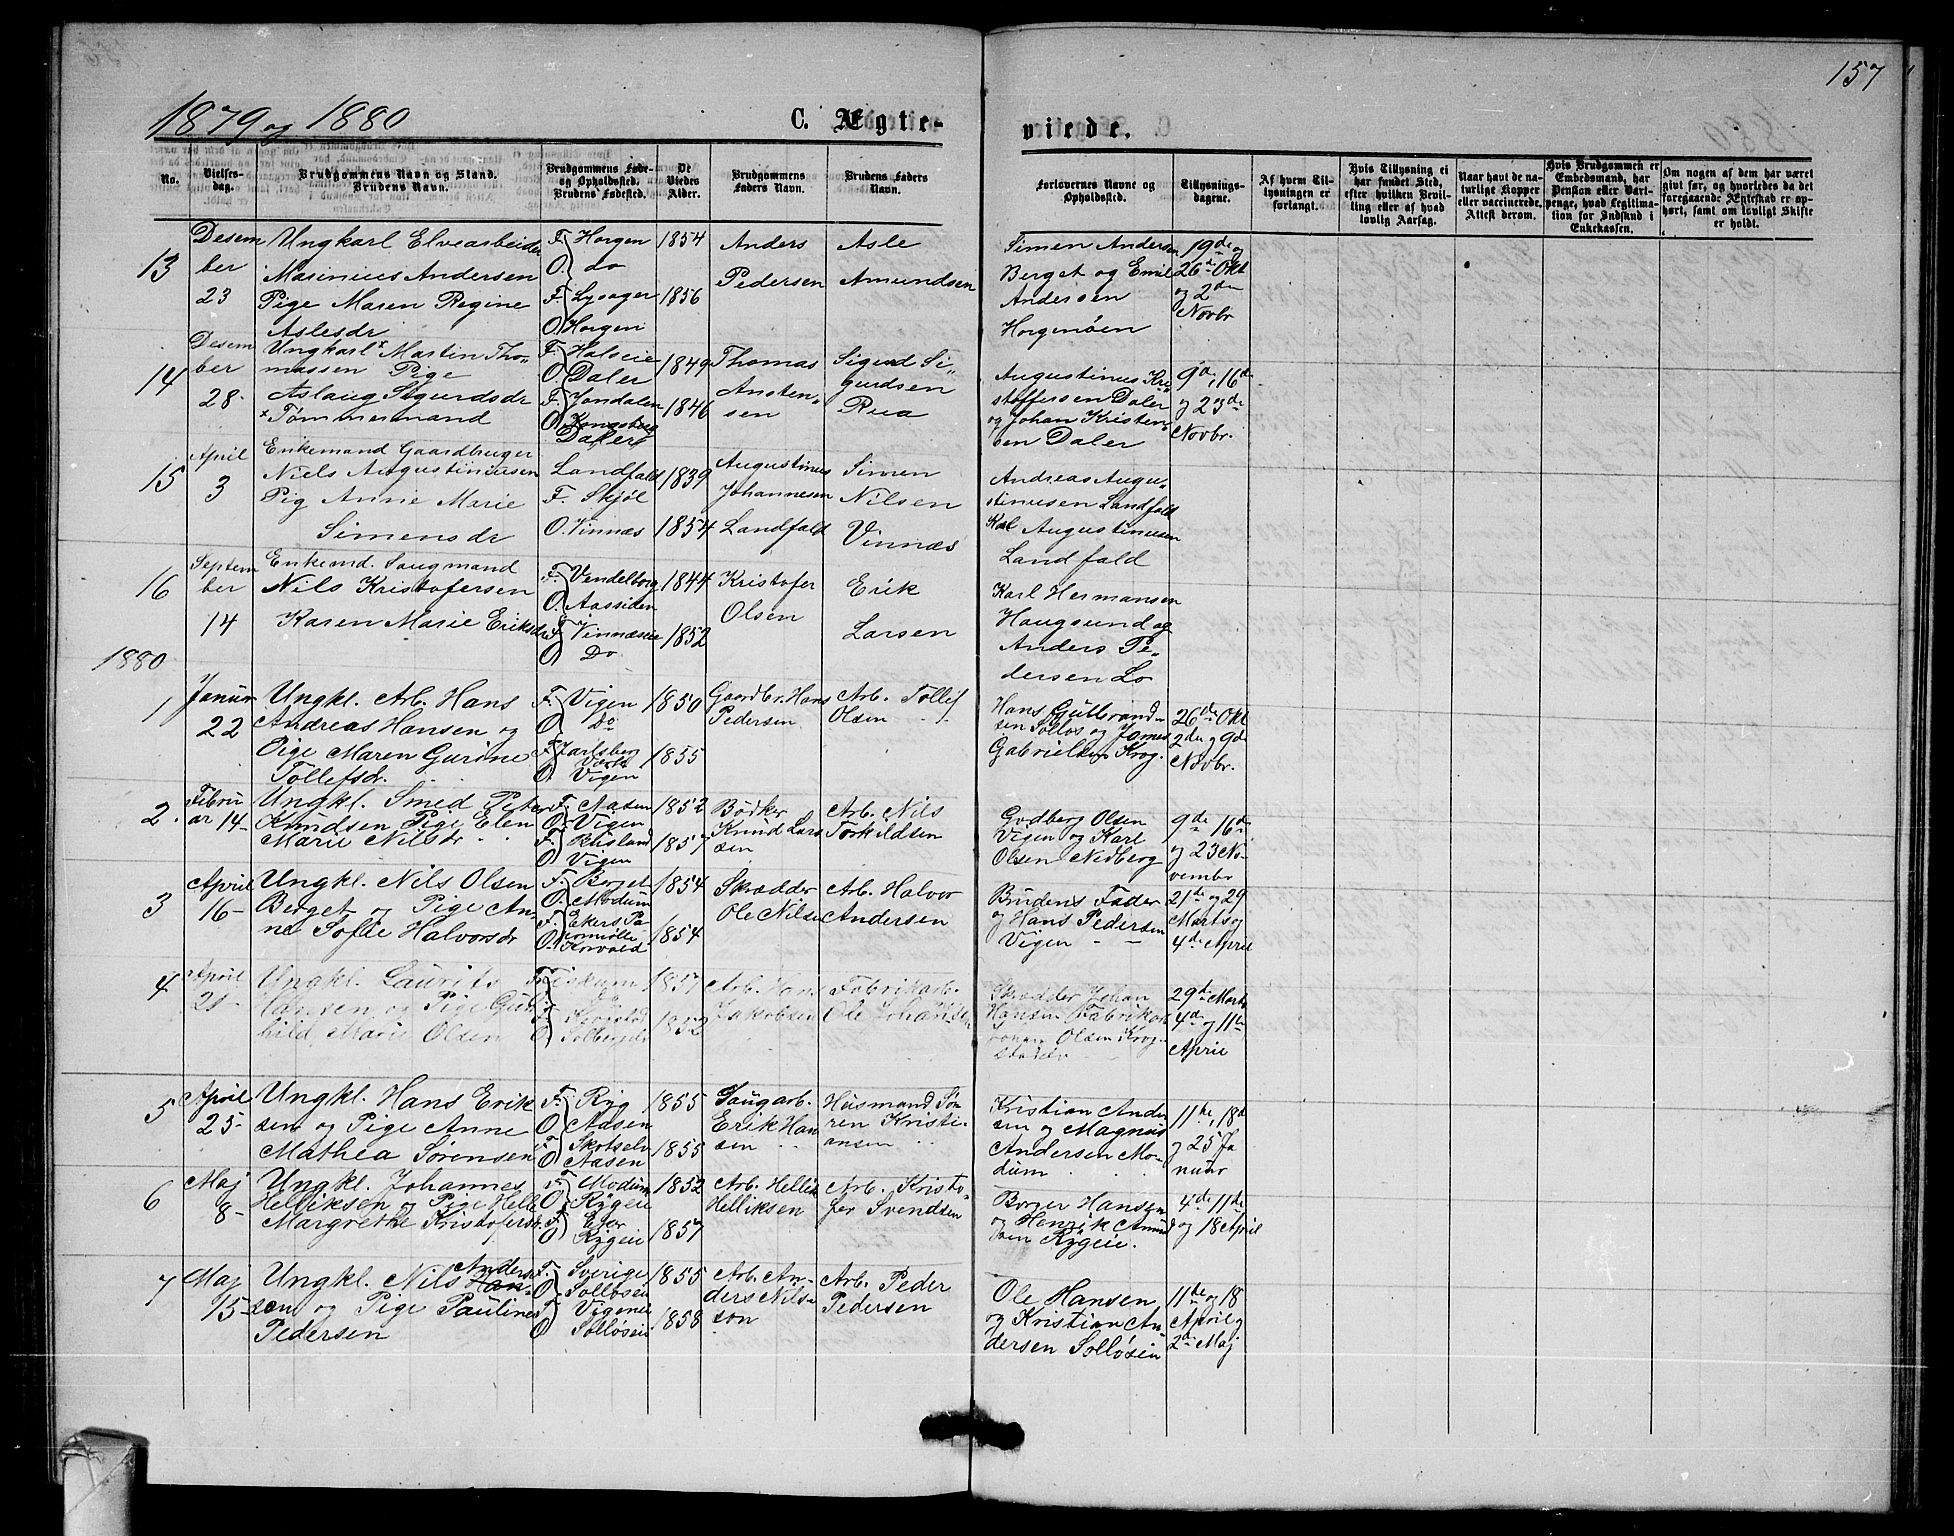 157
1879 og 1880
C. Ægte-
viede.
No.
Vielses-
dag.
Brudgommens Navn og Stand.
Brudens Navn.
Brudgommens Føde-
og Opholdssted.
Brudens Fødested.
De
Viedes
Alder.
Brudgommens
Faders Navn.
Brudens Faders
Navn.
Forlovernes Navne og
Opholdssted.
Tillysnings-
dagene.
Af hvem Til-
lysningen er
forlangt.
Hvis Tillysning ei
har fundet Sted,
efter hvilken Bevil-
ling eller af hvad
lovlig Aarsag.
Naar havt de na-
turlige Kopper
eller vaccinerede.
Attest derom.
Hvis Brudgommen er
Embedsmand, har
Pension eller Vart-
penge, hvad Legitima-
tion for Indskud i
Enkekassen.
Om nogen af dem har været
gift før, og hvorledes da det
foregaaende Ægteskab er op-
hørt, samt om lovligt Skifte
er holdt.
13
Desem
ber
23
Ungkarl Elvearbeider
Masinius Andersen
Pige Maren Regine
Aslesdr
F. Horgen
O. do
F. Lysager
O. Horgen
1854
1856
Anders
Pedersen
Asle
Amundsen
Simen Andersen
Berget og Emil
Andersen
Horgenöen
19de og
26de Okt
og 2den
Novbr
14
Desem
ber
28
Ungkarl x Martin Tho-
massen Pige
Aslaug Sigurdsdr
x Tømmermand
F. Halseie
O. Daler
F. Jondalen
O. Kongsberg
Daler
1849
1846
Thomas
Ansten-
sen
Sigurd Si-
gurdsen
Rua
Augustinus Kri
stoffersen Daler
og Johan Kristen-
sen Daler
9de, 16de
og 23de
Novbr.
15
April
3
Enkemand Gaardbruger
Niels Augustinusen
Pig Anne Marie
Simensdr
Landfald
F. Skjöl
O. Vinnæs
1839
1854
Augustinus
Johannesen
Landfald
Simen
Nilsen
Vinnæs
Andreas Augu-
stinusen Landfald
Karl Augustinusen
Landfald
16
Septem
ber
14
Enkemd. Saugmand
Nils Kristofersen
Karen Marie Eriksdr
F. Vendelborg
O. Aassiden
F. Vinnæseie
O Do
1844
1852
Kristofer
Olsen
Erik
Larsen
Karl Hermansen
Haugsund og
Anders Pe-
dersen Lo
1880
1
Januar
22
Ungkl. Arb. Hans
Andreas Hansen og
Pige Maren Gurine
Tollefsdr.
F. Vigen
O Do
F. Jarlsberg
Værk
O Vigen
1850
1855
Gaardbr. Hans
Pedersen
Arb. Tollef
Olsen
Hans Gulbrand-
sen Solløs og Jomes
Gabrielsen Krog.
26de Okt
2den og 9de
Novbr.
2.
Febru
ar 14-
Ungkl. Smed Peter
Knudsen Pige Elen
Marie Nilsdr
F. Aasen
O. Vigen
F.
O Vigen
1852
1857
Bødker
Knud Lars
sen
Arb. Nils
Torkildsen
Gudberg Olsen
Vigen og Karl
Olsen Nedberg
9de 16de
og 23 No-
vembr
3
April
16-
Ungkl. Nils Olsen
Berget og Pige An-
ne Sofie Halvorsdr
F. Berget
O. Modum
F. Ekers Pa
pirmølle
O. Korvald
1854
1854
Skrædder
Ole Nilsen
Arb. Halvor
Andersen
Brudens Fader
og Hans Pedersen
Vigen
21de og 29
Marts og
4de April
4
April
21-
Ungkl. Laurits
Hansen og Pige Gun
hild Marie Olsen
F. Fiskum
O. Do
F. Krogstad
O Solbergelv
1857
1852
Arb. Hans
Jakobsen
Fabrikarb.
Ole Johansen
Skrædder Johan
Hansen Fabrikarb
Johan Olsen Krog-
stadelv
29de Marts
4de og 11te
April
5
April
25-
Ungkl. Hans Erik
sen og Pige Anne
Mathea Sørensen
F. Ryg
O Aasen
F. Skotselv
O Aasen
1855
1855
Saugarb.
Erik Han
sen
Husmand Sø-
ren Kristi-
ansen
Kristian Ander
sen og Magnus
Andersen Mo-
dum
11te, 18de
og 25 Ja
nuar
6
Maj
8-
Ungkl. Johannes
Helliksen og Pige Helle
Margrethe Kristofersdr.
F. Modum
O. Rygeie
F. Eger
O Rygeie
1852
1857
Arb. Hellik
Helliksen
Arb. Kristo-
fer Svendsen
Borger Hansen
og Henrik Amund
sen Rygeie.
4de 11te
og 18 April
7
Maj
15-
Ungkl. Nils Anders
Han-
sen og Pige Pauline
Pedersen
F. Sverige
O Solløseie
F. Vigeneie
O Solløseie
1855
1858
Arb. An-
ders Nils-
son
Arb. Peder
Pedersen
Ole Hansen
og Kristian An-
dersen Solløseie
11te og 18
April og
2de Maj